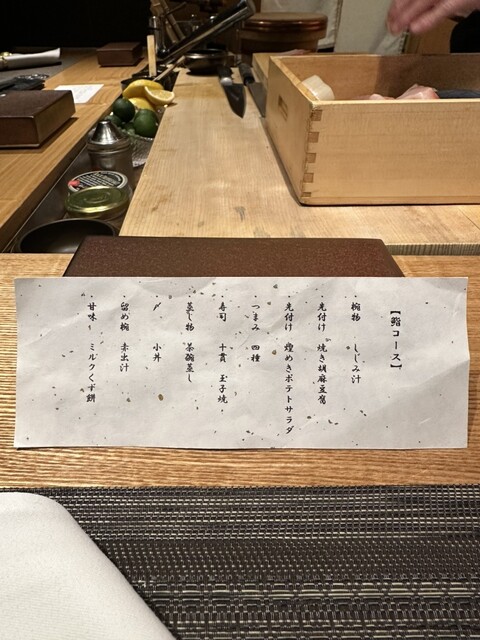 【鮨コース】
・椀物 しじみ汁
・先付け 焼き胡麻豆腐
・先付け 燻めきポテトサラダ
・つまみ 四種
・寿司 十貫 玉子焼
・蒸し物 茶碗蒸し
・〆 小丼
・留め椀 赤出汁
・甘味 ミルクくず餅